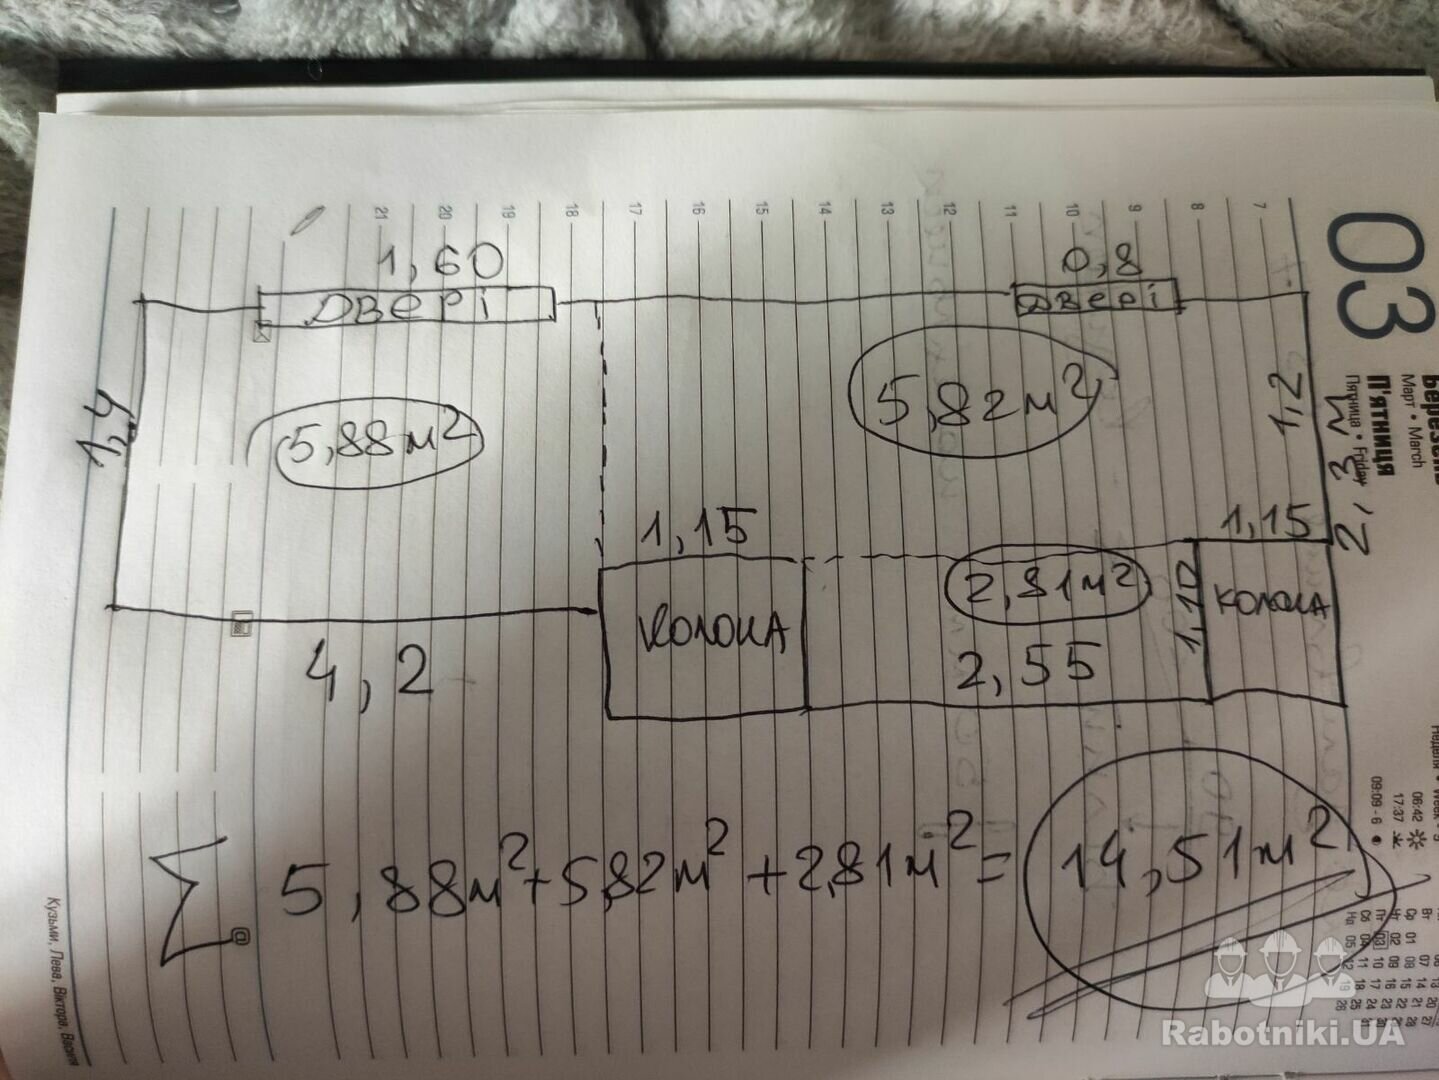 1,60
ДВЕРІ
0,8
ДВЕРІ
1,4
5,88м²
5,82м²
1,2
2,3м
1,15
КОЛОНА
2,81м²
2,55
1,10
1,15
КОЛОНА
4,2
∑ 5,88м²+5,82м²+2,81м²= 14,51м²
21 20 19 18 17 16 15 14 13 12 11 10 9 8 7
03
Березень
Март • March
П'ятниця
Пятница • Friday
06:42
17:37
09:09 - 6
Кузьми, Лева, Віктора, Василя
Rabotniki.UA